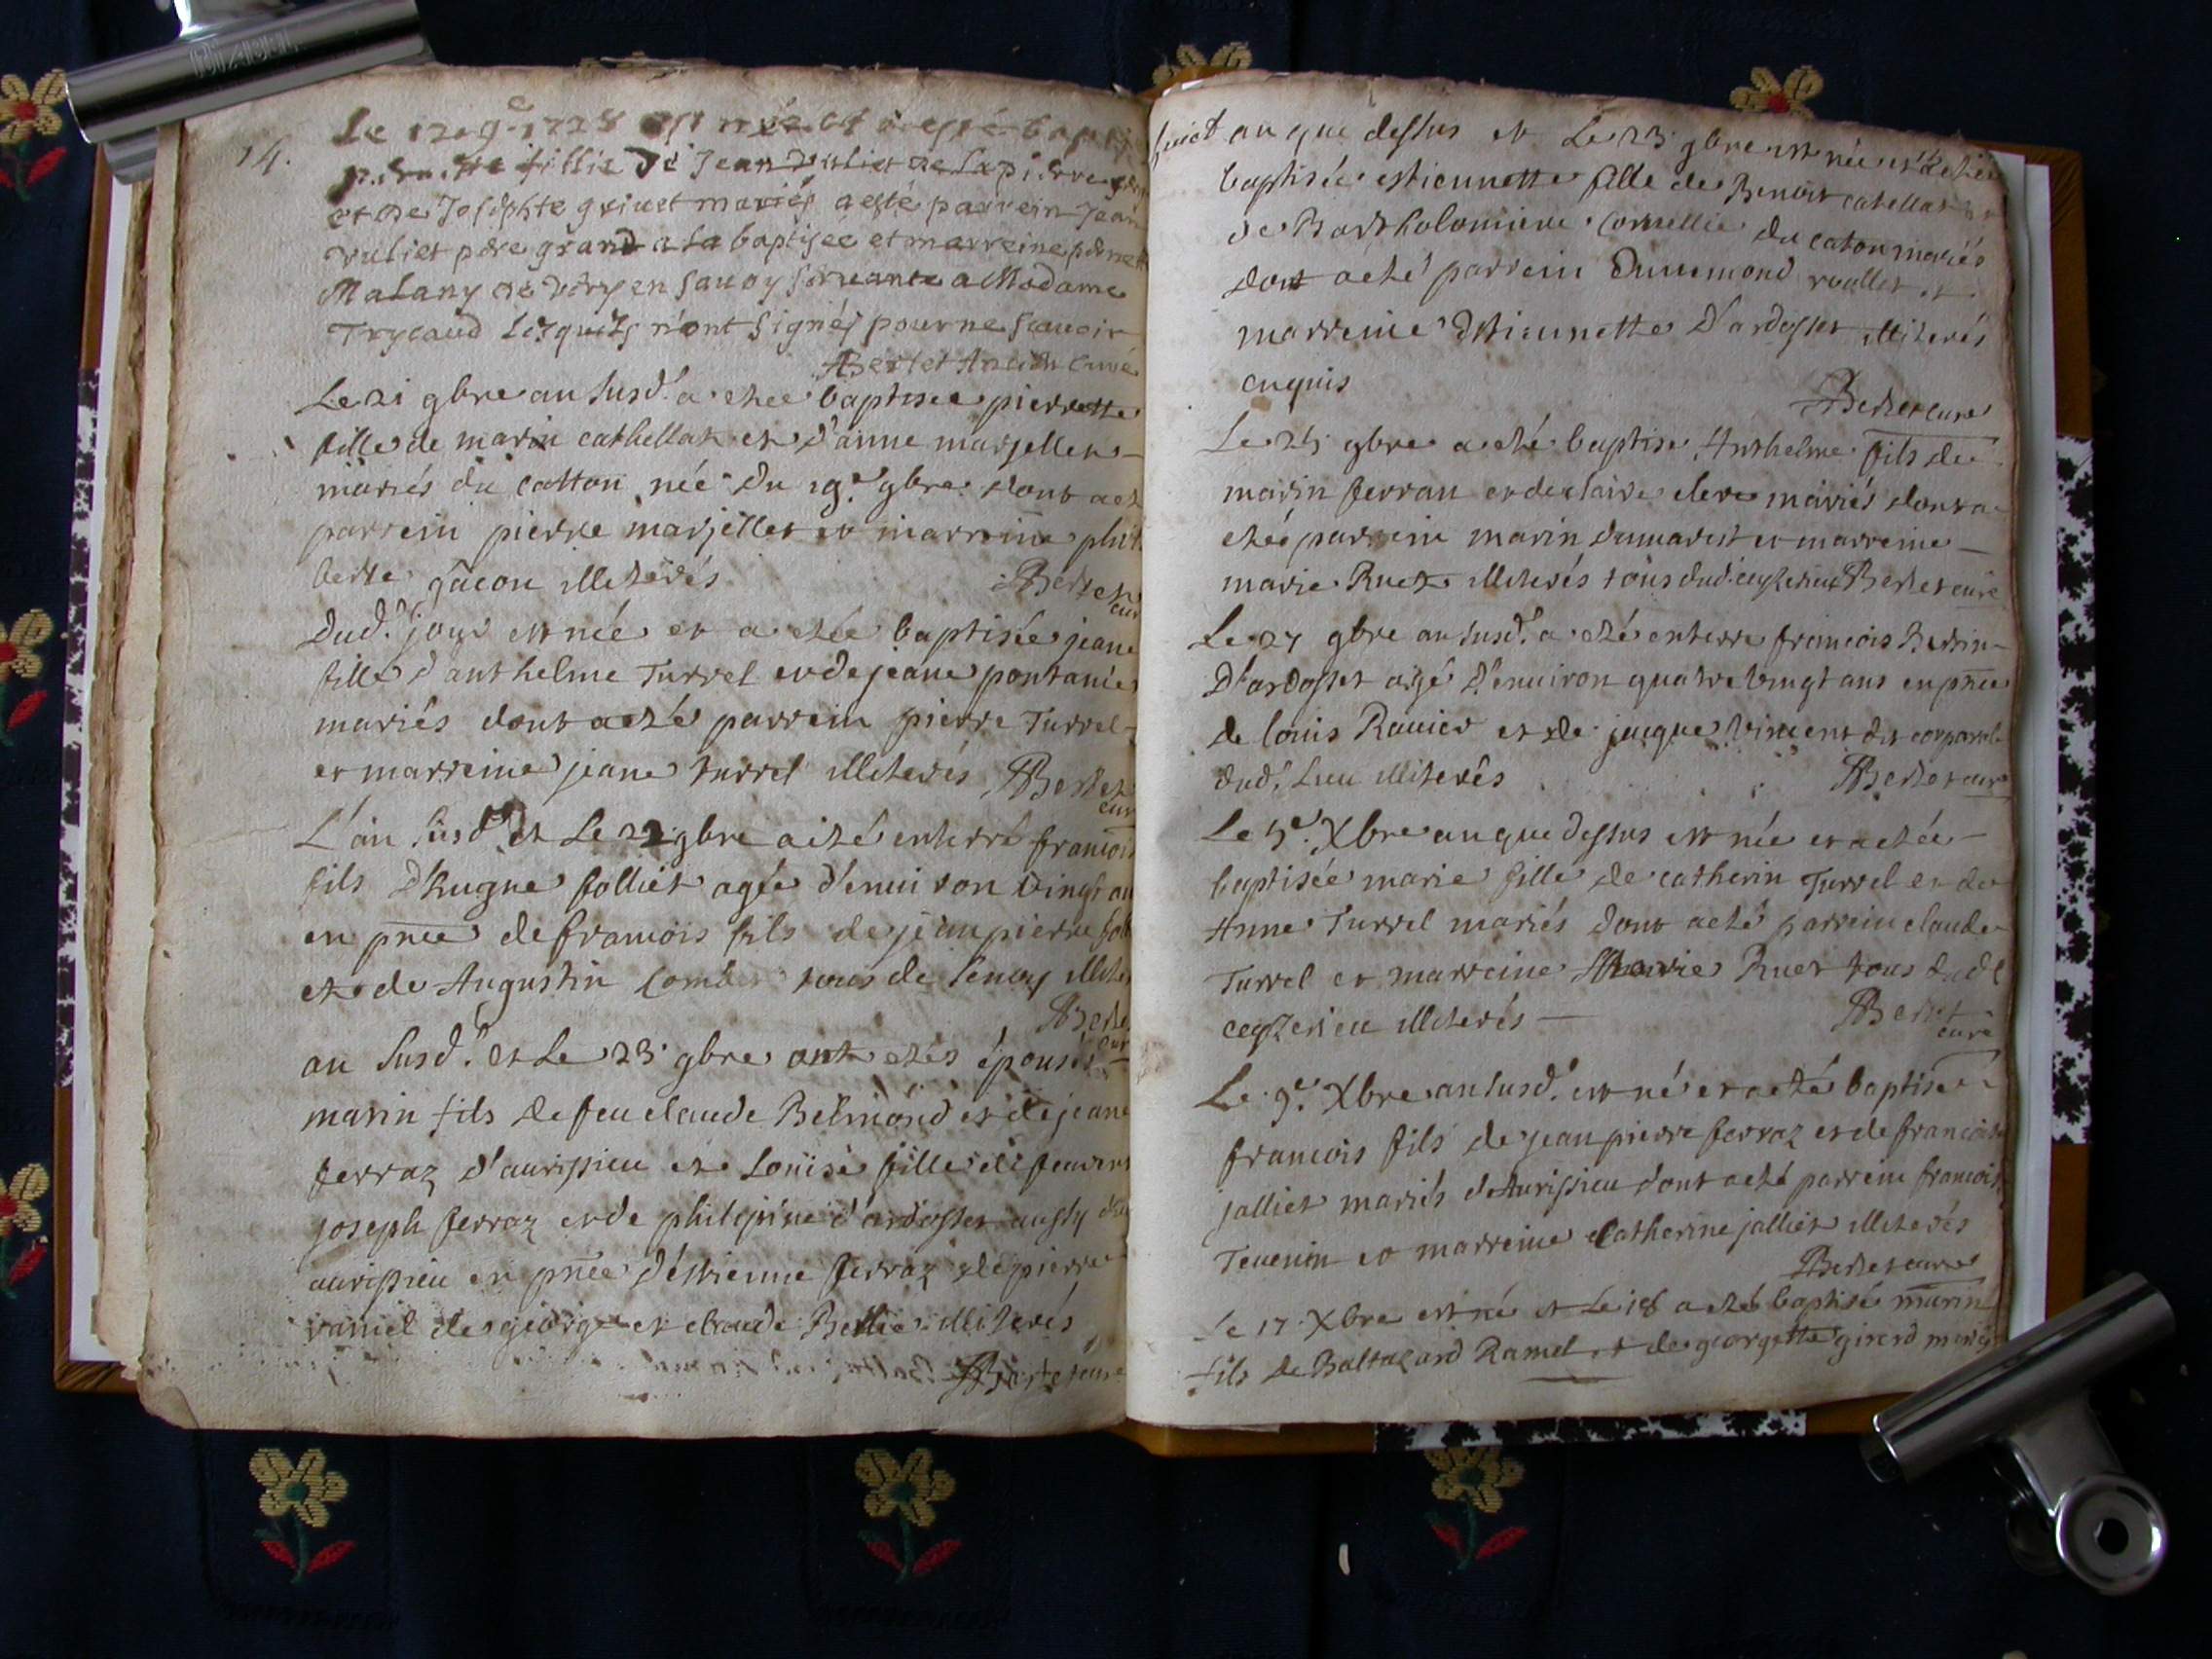 14.
Le 12 9.e 1728 est née et a esté bapt
fillie de Jean Vuliet de Lapierre
et de Josephte griuet mariés a esté parrein Jean
Vuliet pere grand a la baptisee et marreine
Malany de Viry en Sauoy seruante a Madame
Trycaud Lesquels n'ont signés pour ne scauoir
Bertet Ancien curé
Le 21 gbre an susd.t a etee baptisee pierrette
fille de marin cathellat et d'anne marjellet
mariés du catton née du 19.e gbre dont a et
parrein pierre marjellet et marreine phil
berte gacon illiterés Bertet
cur
Dud.t jour est née et a etée baptisée jeane
fille d'anthelme Turrel et de jeane pontanier
mariés dont a eté parrein pierre Turrel
et marreine jeane turrel illiterés Bertet
cur
L'an susd.t et Le 22 gbre a eté enterré francois
fils d'hugue folliet agée d'enuiron vingt an
en pnce de francois fils de jean pierre foll
et de Augustin Combe tous de Senoy illiter
Berte
cur
an susd.t et Le 23 gbre ont etés épousés
marin fils de feu claude Belmond et de jeane
ferraz d'aurissieu et Louise fille de feu
joseph ferraz et de philipine d'ardosset aussy d
aurissieu en pnce d'estienne ferraz de pierre
ramel de george et claude Bellie illiterés
Bertet curé
an que dessus et Le 23 gbre est née et
baptisée estiennette fille de Benoit catellat et
de Bartholomieue Cornellie du caton mariés
dont a eté parrein Dunimond roullet et
marreine Estiennette D'ardosset illiterés
enquis
Bertet curé
Le 25 gbre a eté baptise Anthelme fils de
marin ferran et de claire clere mariés dont a
etée parrein marin dumarest et marreine
marie Ruet illiterés tous dud. ceyzerieu Bertet curé
Le 27 gbre an susd.t a eté enterre francois Berrin
D'ardosset aigé d'enuiron quatre vingt ans en pnce
de louis Rauier et de jacque vincent dit corporal
dud.t Lieu illiterés Bertet curé
Le 5.e Xbre an que dessus est née et a etée
baptisée marie fille de catherin Turrel et de
Anne Turrel mariés dont a eté parrein claude
Turrel et marreine Marie Ruet tous dud.t
ceyzerieu illiterés Bertet
curé
Le 9.e Xbre an susd.t est né et a eté baptisé
francois fils de jean pierre ferraz et de francoise
jalliet mariés d'Aurissieu dont a eté parrein francois
Teuenin et marreine Catherine jalliet illiterés
Bertet curé
Le 17 Xbre est né et Le 18 a eté baptisé marin
fils de Baltazard Ramel et de georgette girerd mariés